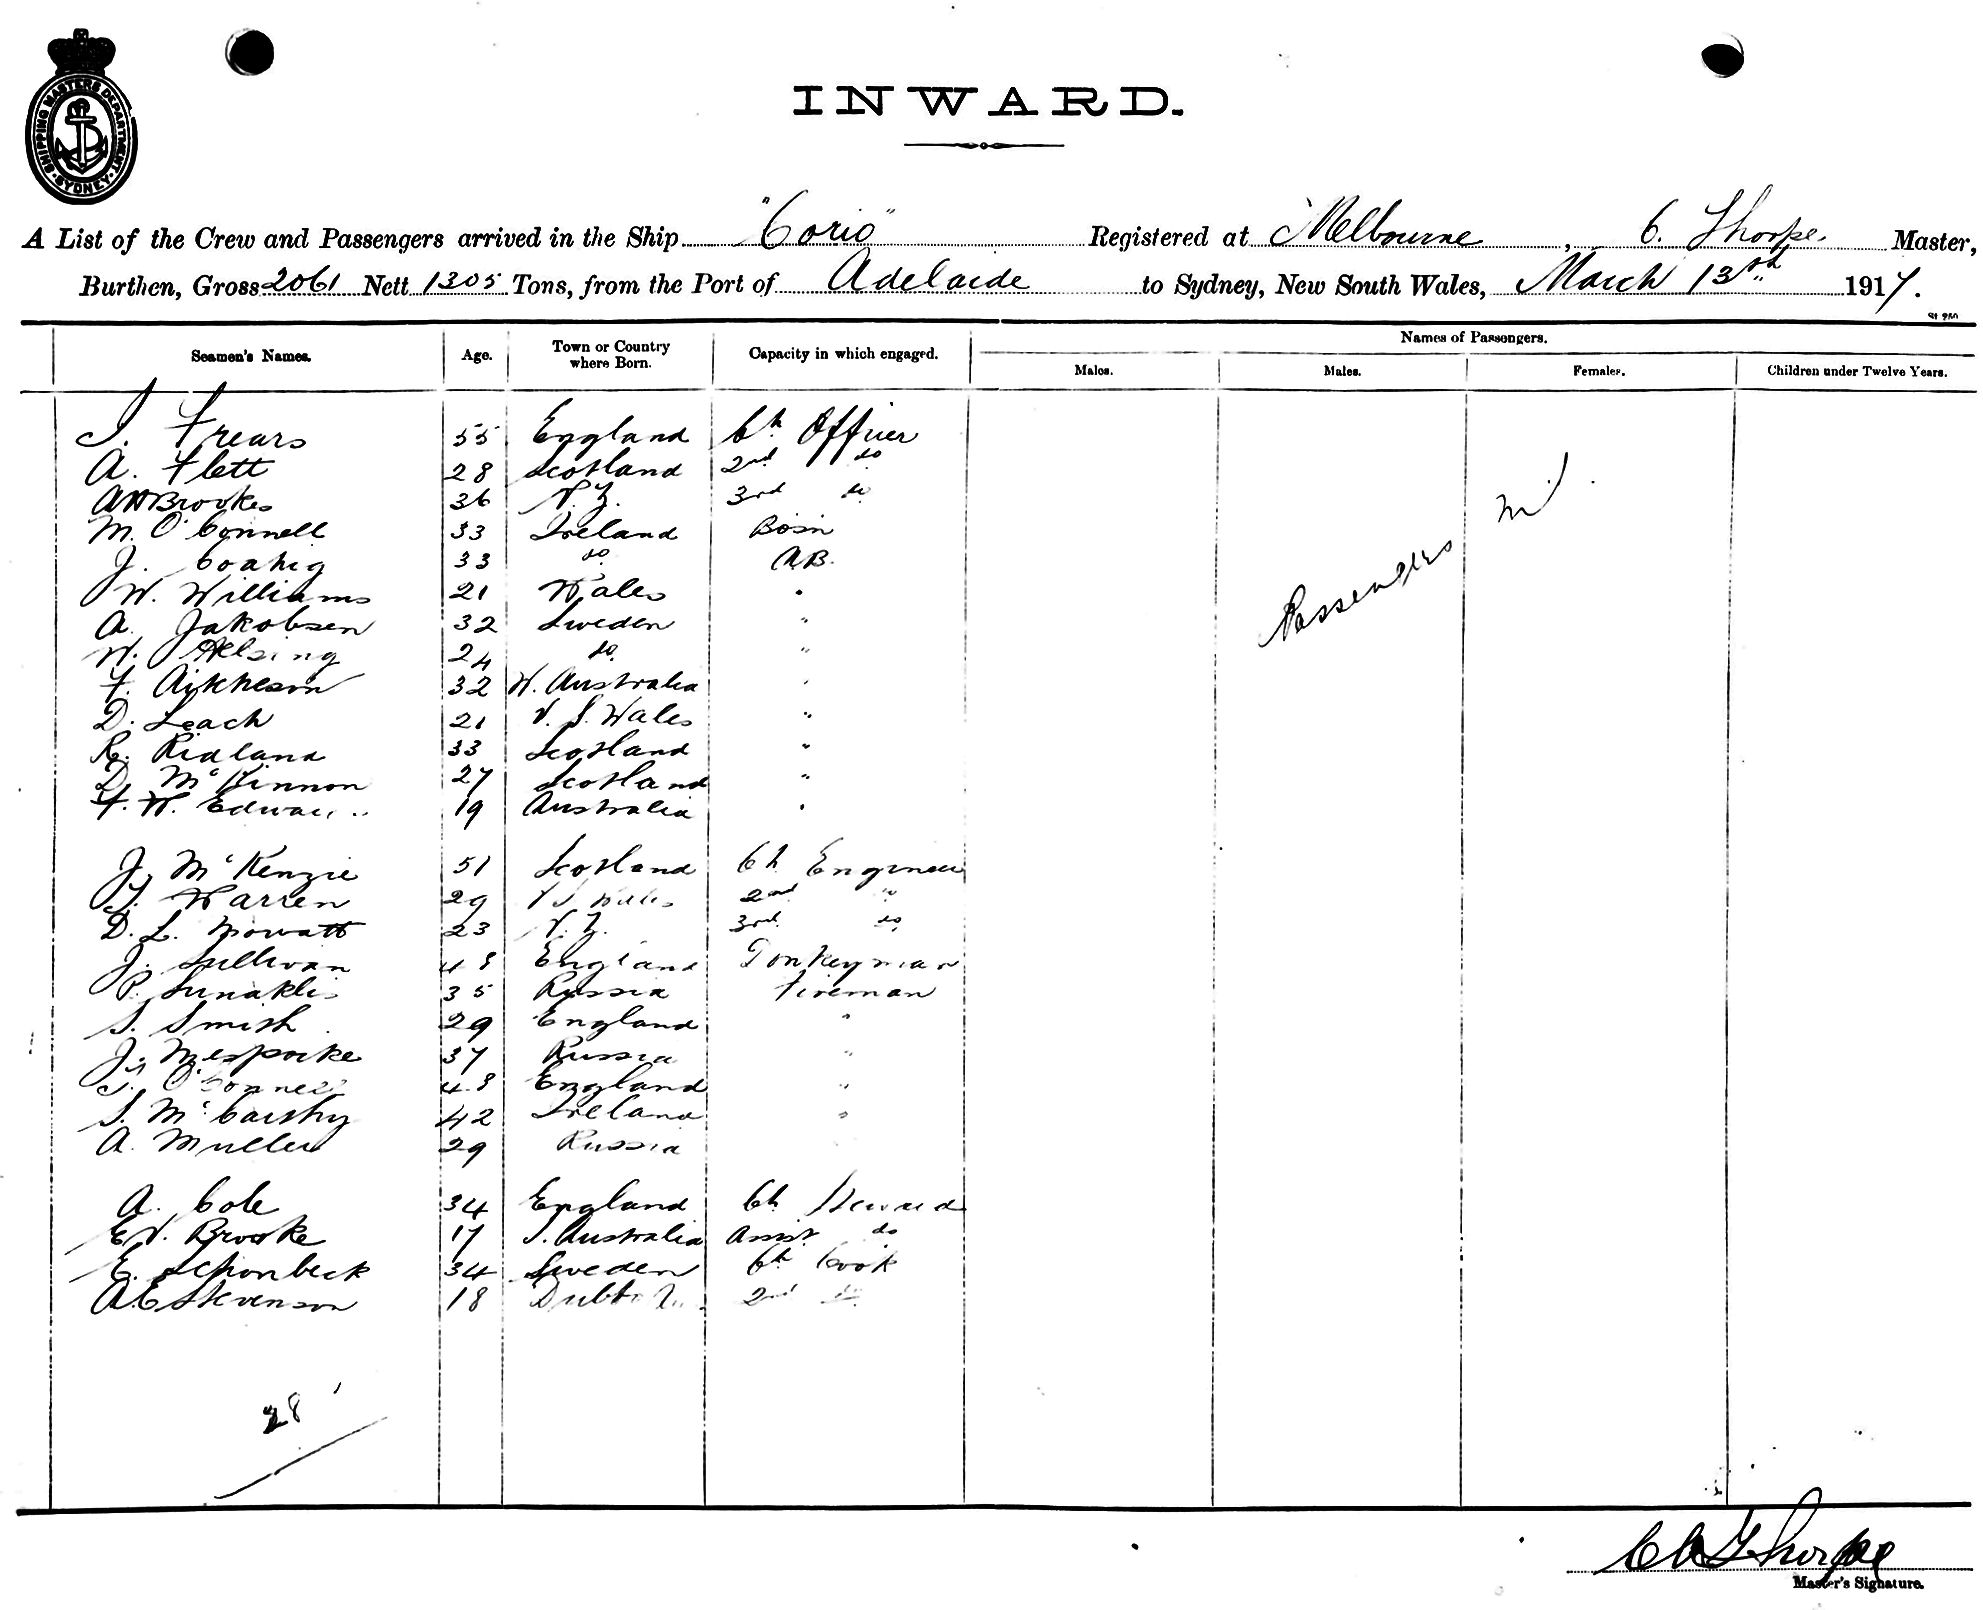 SHIPPING MASTERS DEPARTMENT · SYDNEY ·
INWARD.
A List of the Crew and Passengers arrived in the Ship "Corio" Registered at Melbourne, C. Thorpe. Master,
Burthen, Gross 2061 Nett 1305 Tons, from the Port of Adelaide to Sydney, New South Wales, March 13th 1917.
Names of Passengers.
Seamen's Names. Age. Town or Country where Born. Capacity in which engaged. Males. Males. Females. Children under Twelve Years.
Frears 55 England Ch Officer
A. Flett 28 Scotland 2nd do
AH Brookes 36 N.Z. 3rd do
M. O'Connell 33 Ireland Bosn
J. 33 do AB.
W. Williams 21 Wales "
A. Jakobsen 32 Sweden "
W. 24 do "
F. 32 W. Australia "
D. Leach 21 N. S. Wales "
R. Ridland 33 Scotland "
D. McKinnon 27 Scotland "
F. W. 19 Australia "
J. McKenzie 51 Scotland Ch Engineer
Warren 29 N S Wales 2nd "
D. L. Mowatt 23 N.Z. 3rd do
J. Sullivan 48 England Donkeyman
P. 35 Russia Fireman
S. Smith 29 England "
J. 37 Russia "
O'Connell 48 England "
McCarthy 42 Ireland "
A. Muller 29 Russia
A. Cole 34 England Ch Steward
E V. Brooke 17 S. Australia Assist do
E. Schonbeck 34 Sweden Ch Cook
A.E Stevenson 18 2nd do
Passengers Nil.
28
Thorpe
Master's Signature.